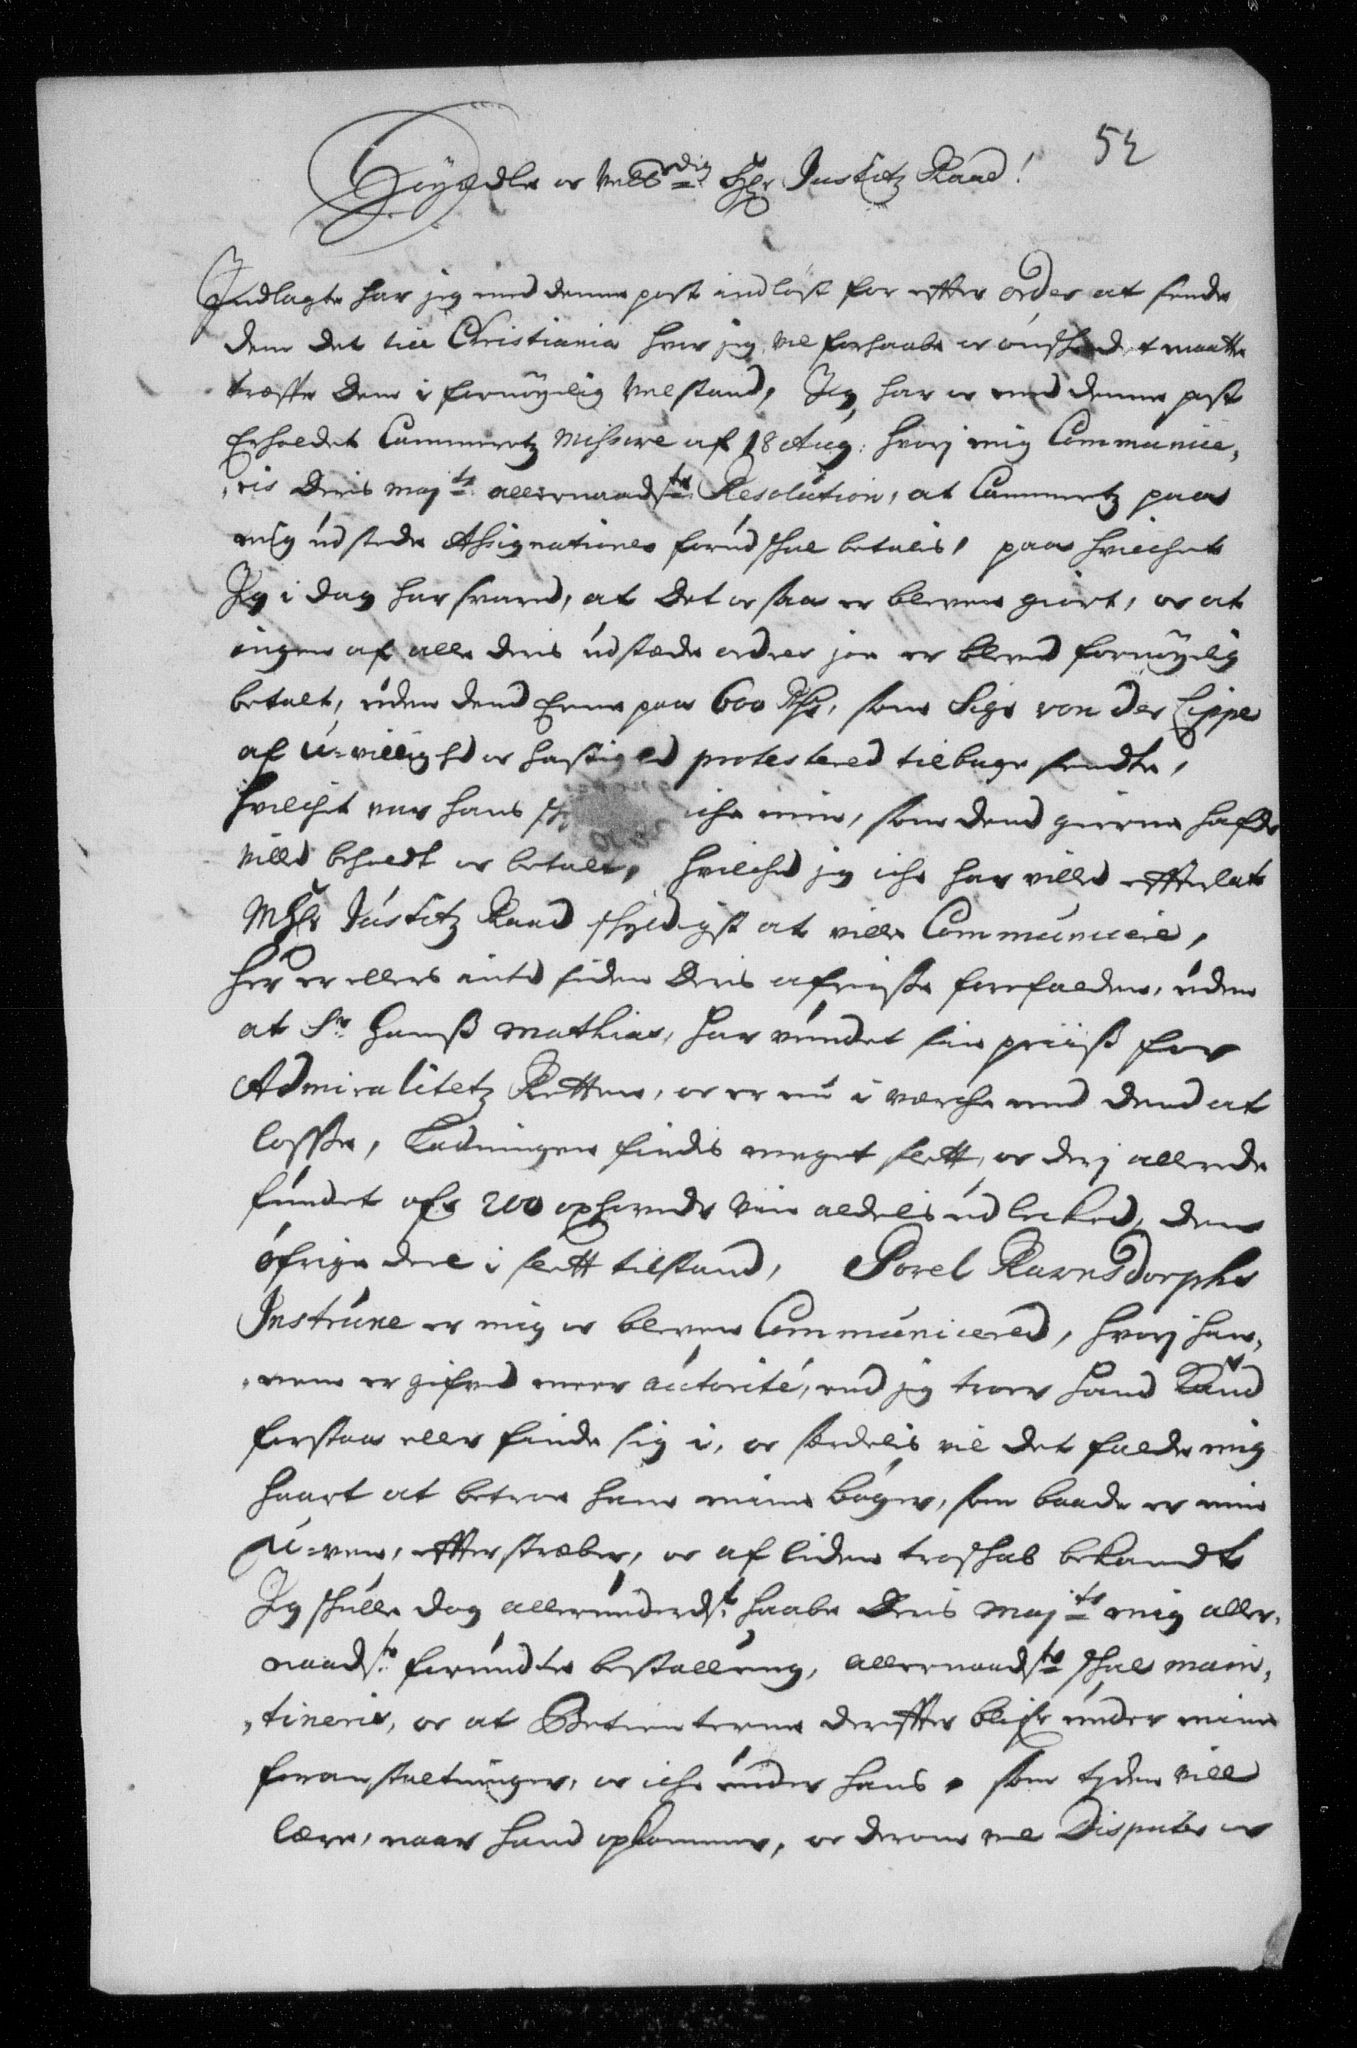 52
Höyædle og Velb:rdig Hr Justitz Raad!
Indlagte har jeg med denne post indløst for efter ordre at sende
dem det till Christiania hvor jeg vil forhaabe og ønsche det maatte
træffe dem i fornöyelig velstand, Jeg har og med denne post
Erholdet Cammeretz Missive af 18 Aug: hvorj mig Communice,
,ris Deris maj:ts allernaadste Resolution, at Cammeretz paa
mig udstede Assignationer forud schal betalis, paa hvilchet
Jeg i dag har svared, at det og saa er bleven giort, og at
ingen af alle deris udstæde ordres jo er blevet fornöyelig
betalt, uden dend Eene paa 600 Rdr, som Sigr von der Lippe
af u-villighd og hastighd protestered tilbage sendte,
hvilchit var hans iche min, som dend gierne hafde
villed beholdt og betalt, hvilched jeg iche har villed efterlate
MHr Justitz Raad schyldigst at ville Communicere,
her er ellers intet siden Deris afreise forefalden, uden
at Sr Hanß Mathias, har vundet sin priiß for
Admiralitetz Retten, og er nu i værche med dend at
losse, Ladningen findis meget slett, og derj allerede
fundet ofr 200 oxhoveder viin aldelis udlecked, den
öfrige deel i slett tilstand, Povel Ravnsdorphs
Instruxe er mig og bleven Communicered, hvorj han,
,nem er gifved meer autorité, end jeg troer hand kand
forstaa eller finde sig i, og særdelis vil det falde mig
haart at betroe ham mine böger, som baade er min
U-ven, efterstræber, og af liden troschab bekandt
Jeg schulle dog allerunderdst haabe Deris Maj:ts mig aller,
naadst forundte bestalling, allernaadste schal main,
,tineris, og at Betienterne derefter blifr under mine
foranstaltninger, og iche under hans, som tyden vill
lære, naar hand opkommer, og derom vel Disputer og